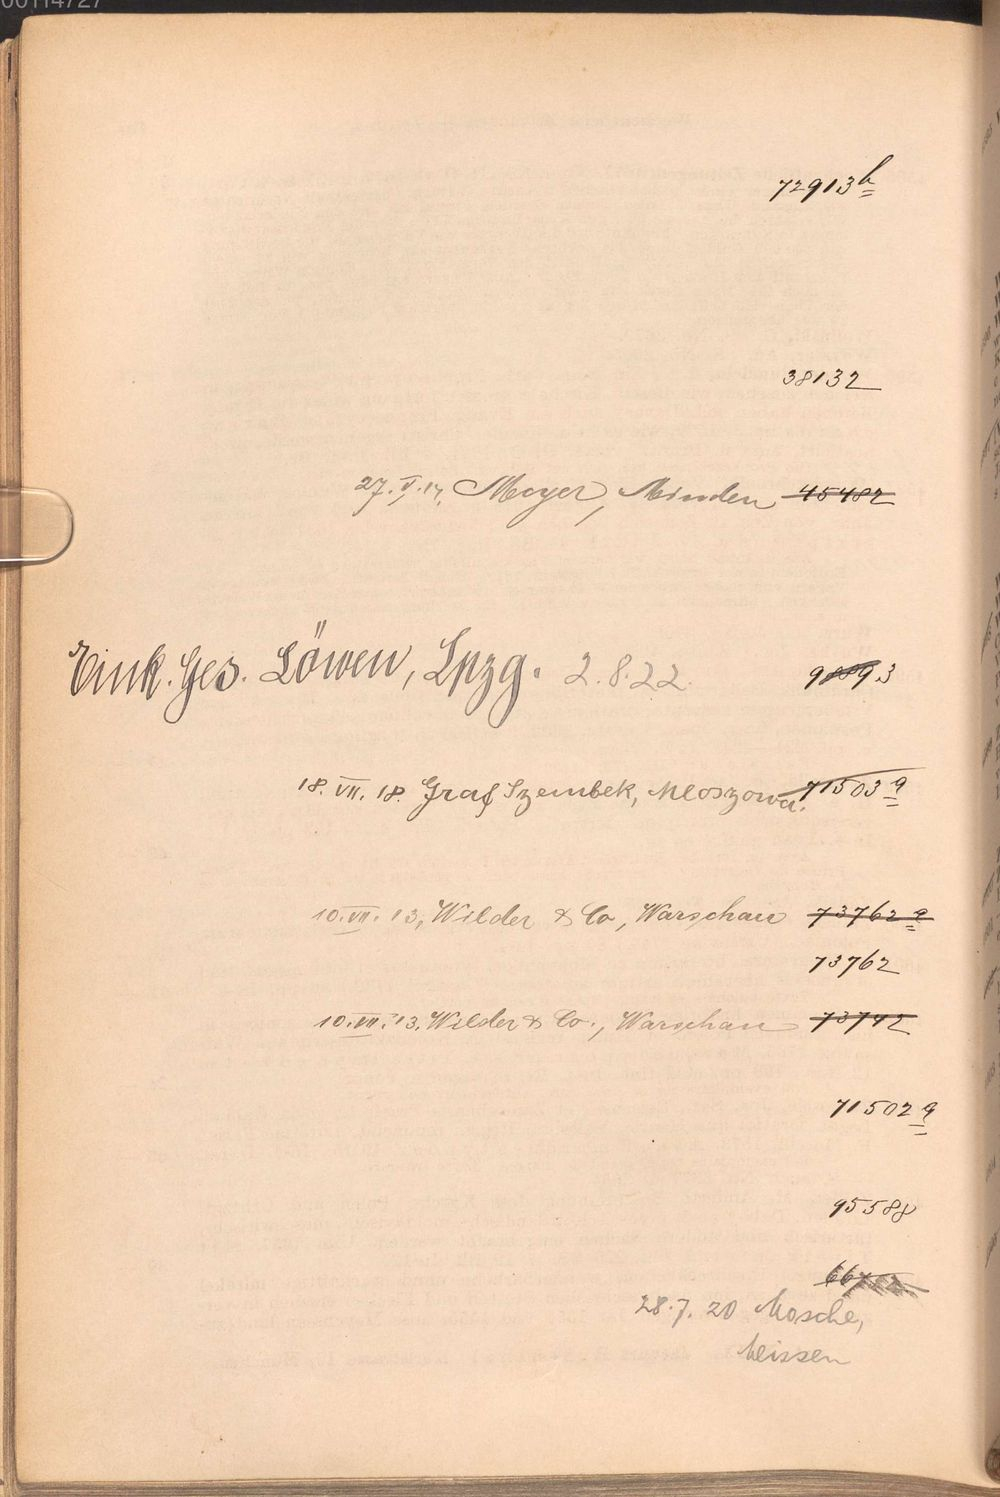 00114727
72913 b
38132
27. V. 14, Meyer, Minden 45482
Eink. Ges. Löwen, Lpzg. 2.8.22.
18. VII. 18. Graf Szembek, Mloszowa. 71503 a
10. VII. 13, Wilder & Co, Warschau 73762 a
73762
10. VII. 13. Wilder & Co., Warschau 73742
71502 a
95588
28.7.20 Mosche,
Meissen